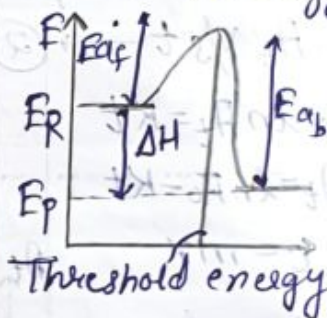 E
Eaf
ER
ΔH
Eab
EP
Threshold energy